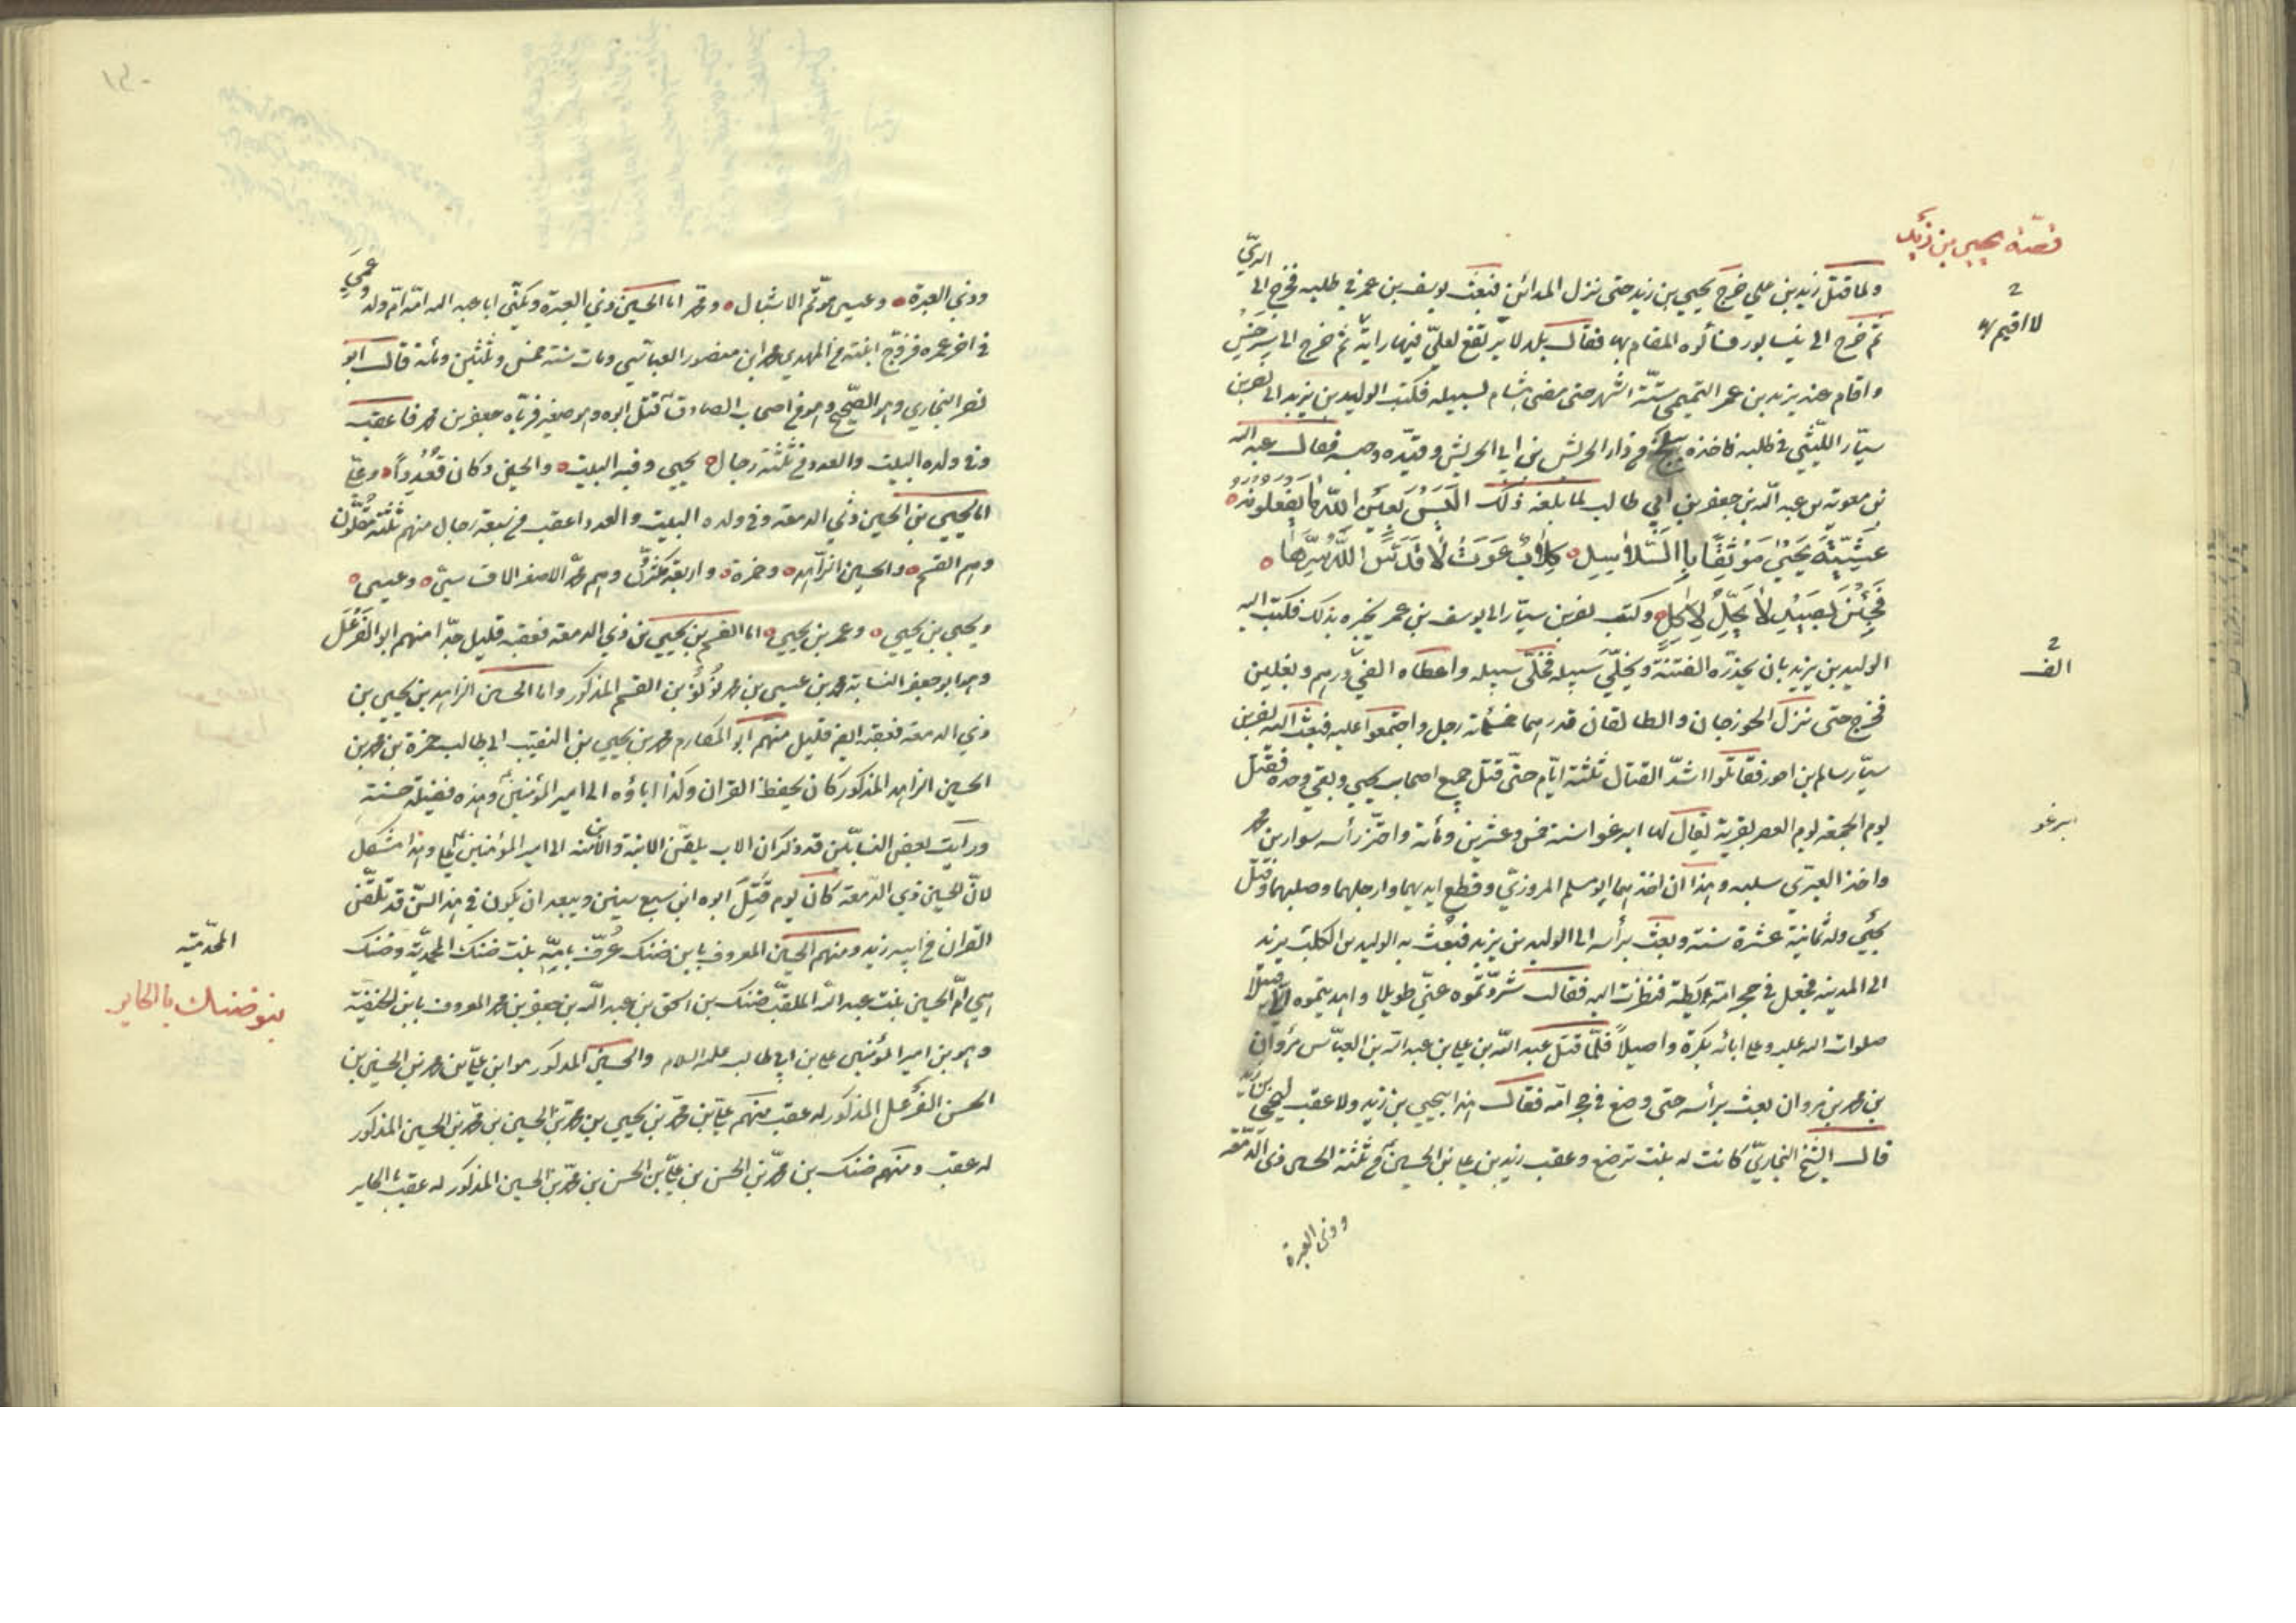 قصّة يحيى بن زيد
ولما قتل زيد بن علي خرج يحيى بن زيد حتى نزل المدائن فبعث يوسف بن عمر في طلبه فخرج الى الريّ
ثم خرج الى نيسابور فسألوه المقام بها فقال بلد لا يرتفع لعليّ فيها راية ثم خرج الى سرخس
لا اقيم بها
واقام عند يزيد بن عمر التميمي ستّة اشهر حتى مضى هشام لسبيله فكتب الوليد بن يزيد الى نصر بن
سيّار الليثي في طلبه فاخذه ببلخ من دار الحريش بن ابي الحريش وقيّده وحبسه فقال عبد الله
بن معوية بن عبد الله بن جعفر بن ابي طالب لما بلغه ذلك اليس بعين الله ما يفعلونه
عشيّة يحيى موثقا باالسّلاسيل كلاب عوت لا قدّس الله سرّها
فجئن بصيد لا يحلّ لاكل وكتب نصر بن سيّار الى يوسف بن عمر يخبره بذلك فكتب اليه
الوليد بن يزيد بان يحذّره الفتنة ويخلّي سبيله فخلّى سبيله واعطاه الفي درهم وبغلين
الف
فخرج حتى نزل الجوزجان والطالقان قدر بهما خمسمائة رجل واجتمعوا عليه فبعث اليه نصر بن
سيّار سالم بن احور فقاتلوا اشدّ القتال ثلثة ايّام حتّى قتل جميع اصحاب يحيى وبقي وحده فقتل
يوم الجمعة يوم العصر بقرية يقال لها ابرغوا سنة خمس وعشرين ومأئة واحتزّ رأسه سوار بن محمد
ابرغو
واخذ العبّري سلبه وهذا ان اخذ بهما ابو مسلم المروزيّ وقطع ايديهما وارجلهما وصلبهما وقتل
يحيى وله ثمانية عشرة سنة وبعث برأسه الى الوليد بن يزيد فبعث به الوليد بن يزيد
الى المدينة فجعل في حجر امّه ريطة فنظرت اليه فقالت شرّدتموه عنّي طويلا واهديتموه اليّ قتيلا
صلوات الله عليه وعلى ابائه بكرة واصيلاً فلمّا قتل عبد الله بن علي بن عبد الله بن العبّاس مروان
بن محمد بن مروان بعث برأسه حتى وضع في حجر امّه فقال هذا بيحيى بن زيد ولا عقب ليحيى بن زيد
قال الشيخ النجاريّ كانت له بنت ترضع وعقب زيد بن علي بن الحسين من ثلثة الحسين ذي الدّمعة
وذى العبرة
وذي العبرة وعيسى موتّم الاشبال ومحمد اما الحسين ذي العبرة ويكنّى ابا عبد الله امّه امّ ولد وعمي
في اخر عمره فزوّج ابنته من المهدي محمد ابن منصور العباسي ومات سنة خمس وثلثين ومئة قال ابو
نصر النجاري وهو الصّحيح وهو من اصحاب الصادق قتل ابوه وهو صغير فربّاه جعفر بن محمد فاعقب
وفي ولده البيت والعدد من ثلثة رجال يحيى وفيه البيت والحسين وكان قعدداً وعلي
اما يحيى بن الحسين ذي الدمعة وفي ولده البيت والعدد اعقب من سبعة رجال منهم ثلثة مقلّون
وهم القسم والحسين الزاهد وحمزة واربعة مكثرون وهم محمد الاصغر الاقساسيّ وعيسى
ويحيى بن يحيى وعمر بن يحيى اما القسم بن يحيى بن ذي الدمعة فعقبه قليل جدّا منهم ابو الفرعل
وهو ابو جعفر النسابة محمد بن عيسى بن محمد لؤلؤ بن القسم المذكور واما الحسين الزاهد بن يحيى بن
ذي الدمعة فعقبه ايضاً قليل منهم ابو المكارم محمد بن يحيى بن النقيب ابي طالب حمزة بن محمد بن
الحسين الزاهد المذكور كان يحفظ القران وكذا اباؤه الى امير المؤمنين وهذه فضيلة حسنة
ورأيت بعض النسابين قد ذكر ان الاب يلقّن الابنة والابن منه الى امير المؤمنين علي وهذا مشكل
لانّ الحسين ذي الدمعة كان يوم قتل ابوه ابن سبع سنين ويبعد ان يكون في هذا السنّ قد تلقّن
القران من ابيه زيد ومنهم الحسين المعروف بابن ضنك عرّف بامّه بنت ضنك المحمديّة وضنك
المحمّديّة
بنو ضنك بالحاير
هي امّ الحسين بنت عبد الله الملقب ضنك بن اسحق بن عبد الله بن جعفر بن محمد المعروف بابن الحنفية
وهو بن امير المؤمنين علي بن ابي طالب عليه السلام والحسين المذكور هو ابن علي بن محمد بن الحسين بن
الحسن الفرعل المذكور له عقب منهم علي بن محمد بن يحيى بن محمد بن الحسين بن محمد بن الحسين المذكور
له عقب ومنهم ضنك بن محمد بن الحسن بن علي بن الحسن بن محمد بن الحسين المذكور له عقب بالحاير